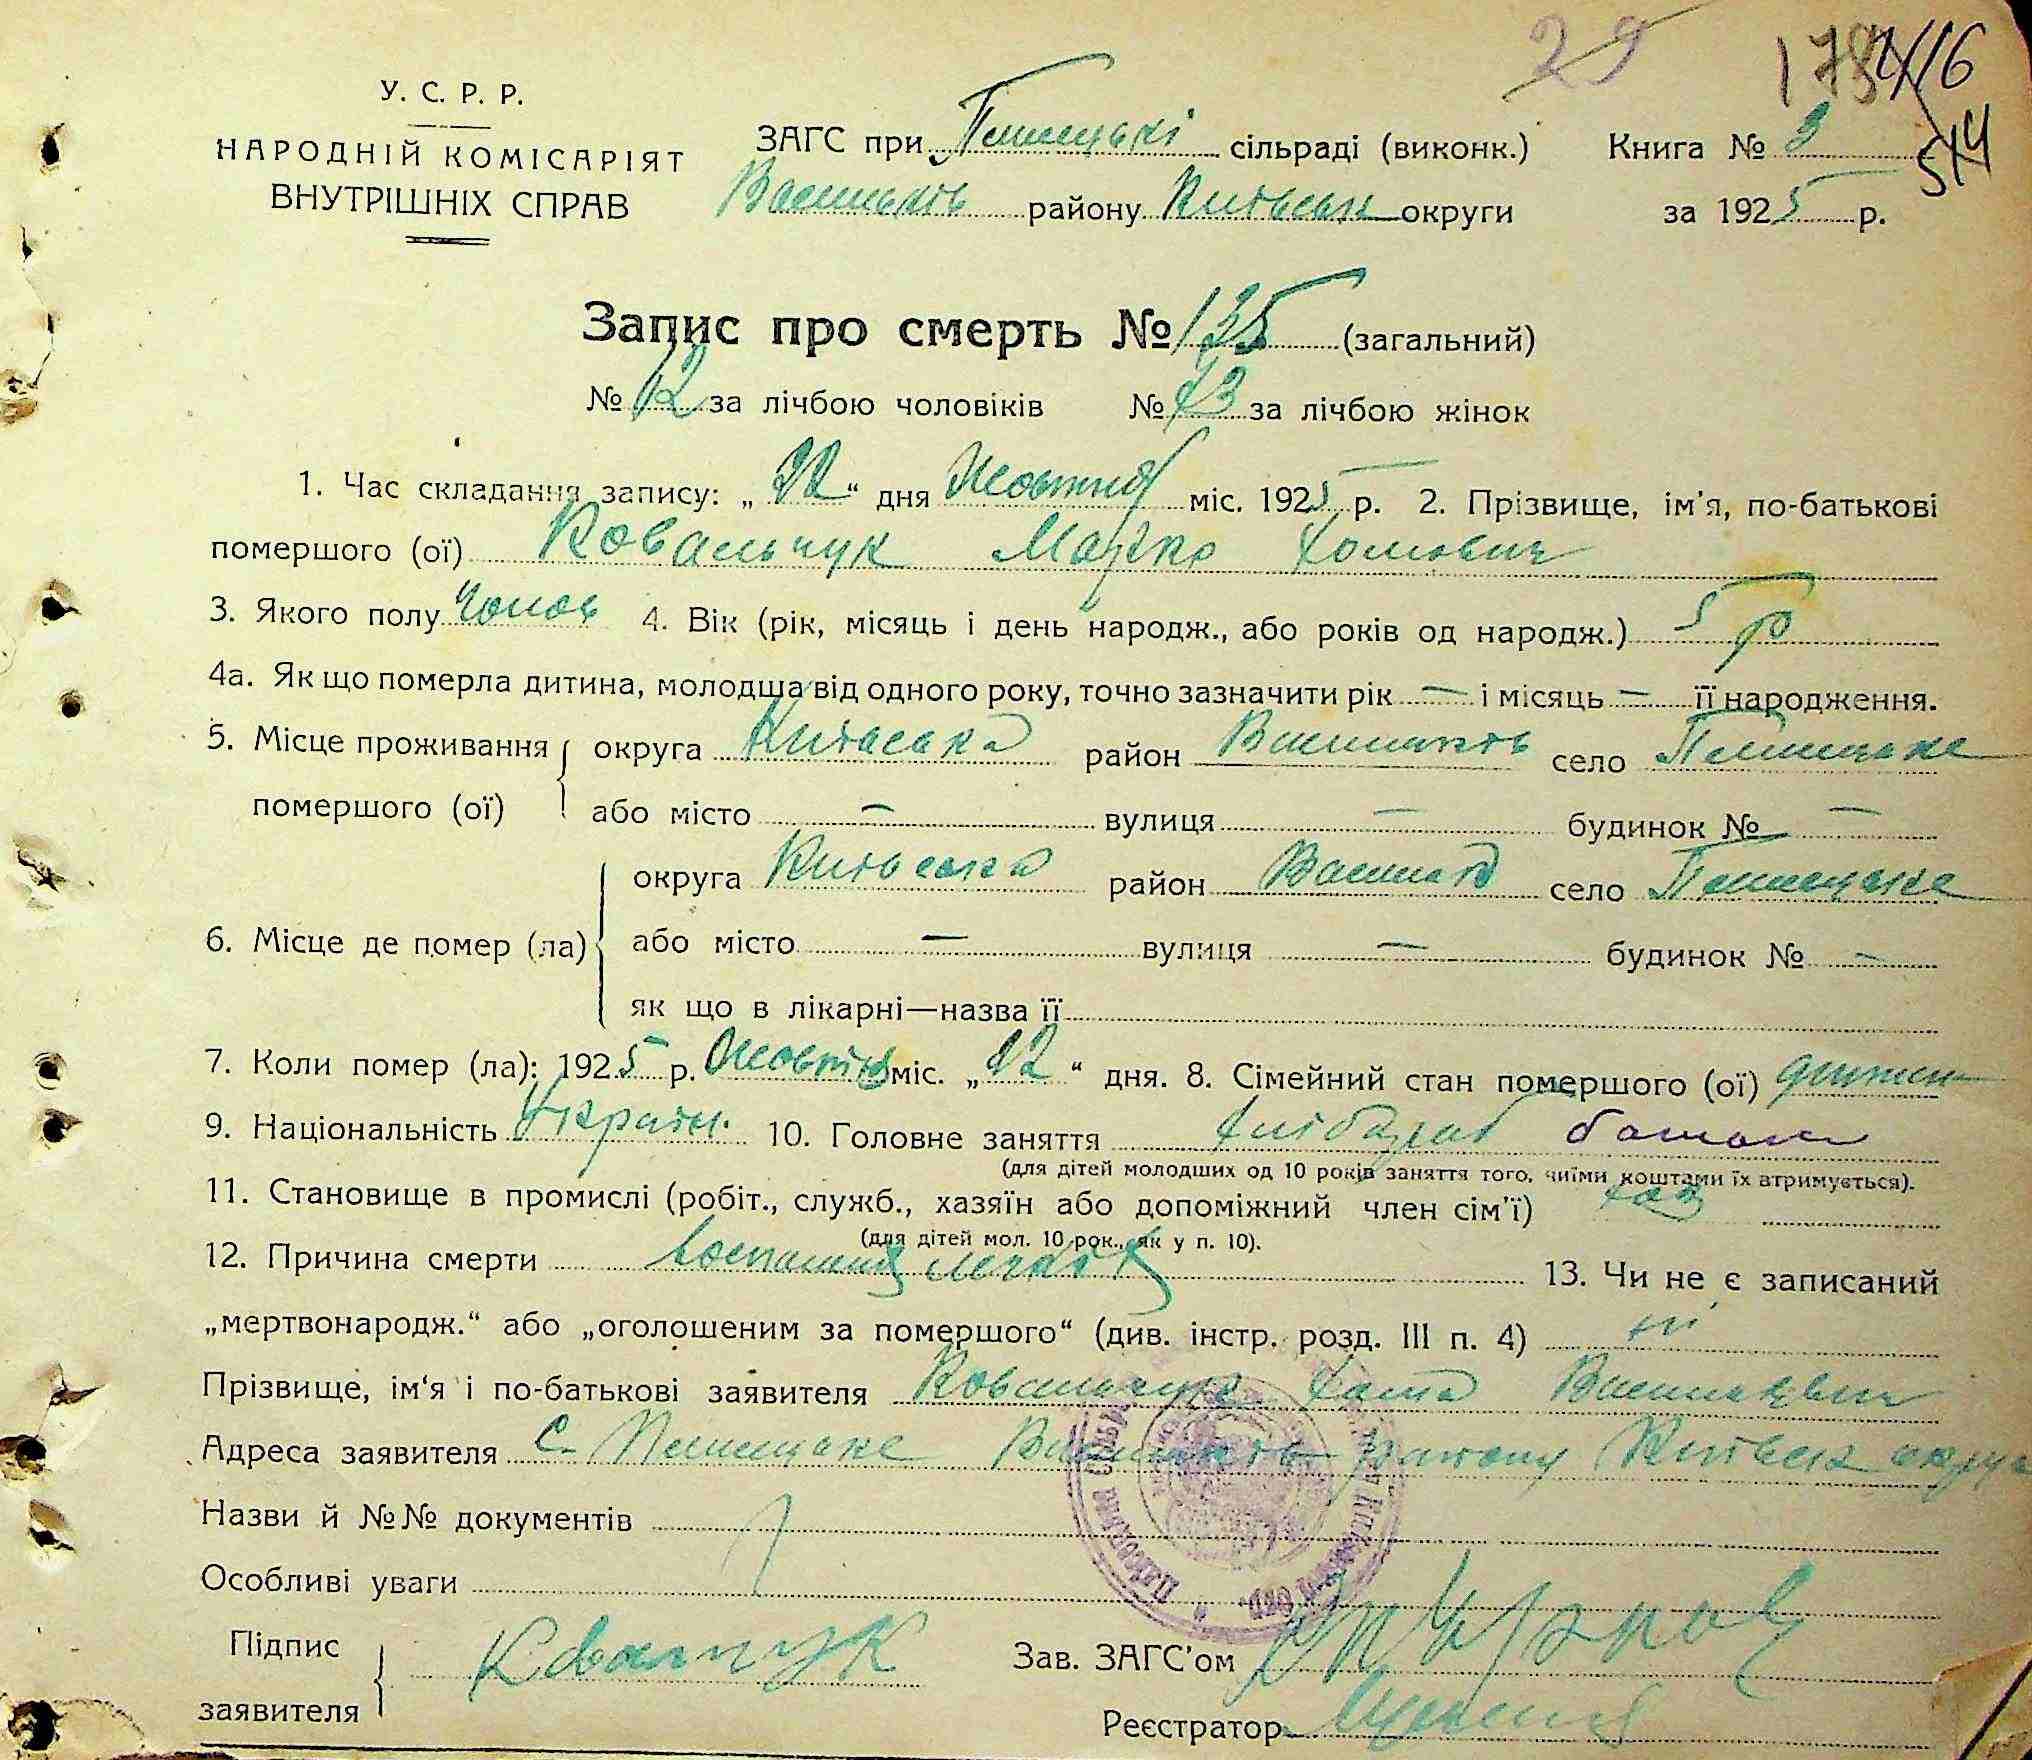 29 178 416
514
У. С. Р. Р.
НАРОДНІЙ КОМІСАРІЯТ
ВНУТРІШНІХ СПРАВ
ЗАГС при сільраді (виконк.) Книга № 3
Васильків району Київськ округи за 1925 р.
Запис про смерть № 135 (загальний)
№ за лічбою чоловіків № за лічбою жінок
1. Час складання запису: „22“ дня Жовтня міс. 1925 р. 2. Прізвище, ім'я, по-батькові
помершого (ої) Ковальчук Марко Хомович
3. Якого полу Чолов 4. Вік (рік, місяць і день народж., або років од народж.) 5 р
4а. Як що померла дитина, молодша від одного року, точно зазначити рік — і місяць — її народження.
5. Місце проживання округа Київська район Васильків село
помершого (ої) або місто — вулиця — будинок № —
округа Київська район Васильк село
6. Місце де помер (ла) або місто — вулиця — будинок № —
як що в лікарні—назва її
7. Коли помер (ла): 1925 р. Жовтня міс. „22“ дня. 8. Сімейний стан помершого (ої) дитина
9. Національність Україн. 10. Головне заняття хлібороб батько
(для дітей молодших од 10 років заняття того, чиїми коштами їх втримується).
11. Становище в промислі (робіт., служб., хазяїн або допоміжний член сім'ї) хаз
(для дітей мол. 10 рок., як у п. 10).
12. Причина смерти 13. Чи не є записаний
„мертвонародж.“ або „оголошеним за помершого“ (див. інстр. розд. III п. 4) ні
Прізвище, ім'я і по-батькові заявителя Ковальчук Хома Васильович
Адреса заявителя С. Васильків району Київськ округи
Назви й №№ документів
Особливі уваги
Підпис
заявителя Ковальчук
Зав. ЗАГС'ом
Реєстратор